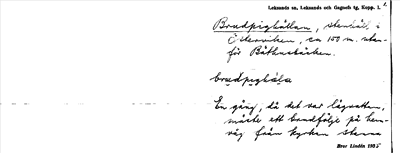 Leksands sn, Leksands och Gagnefs tg, Kopp. l. 1.
Brudpighällan, stenhäll i
Österviken, ca 100 m. utan-
för Båthusbacken.
brudpighäla
En gång, då det var lågvatten,
måste ett brudfölje på hem-
väg från kyrkan stanna
Bror Lindén 1935